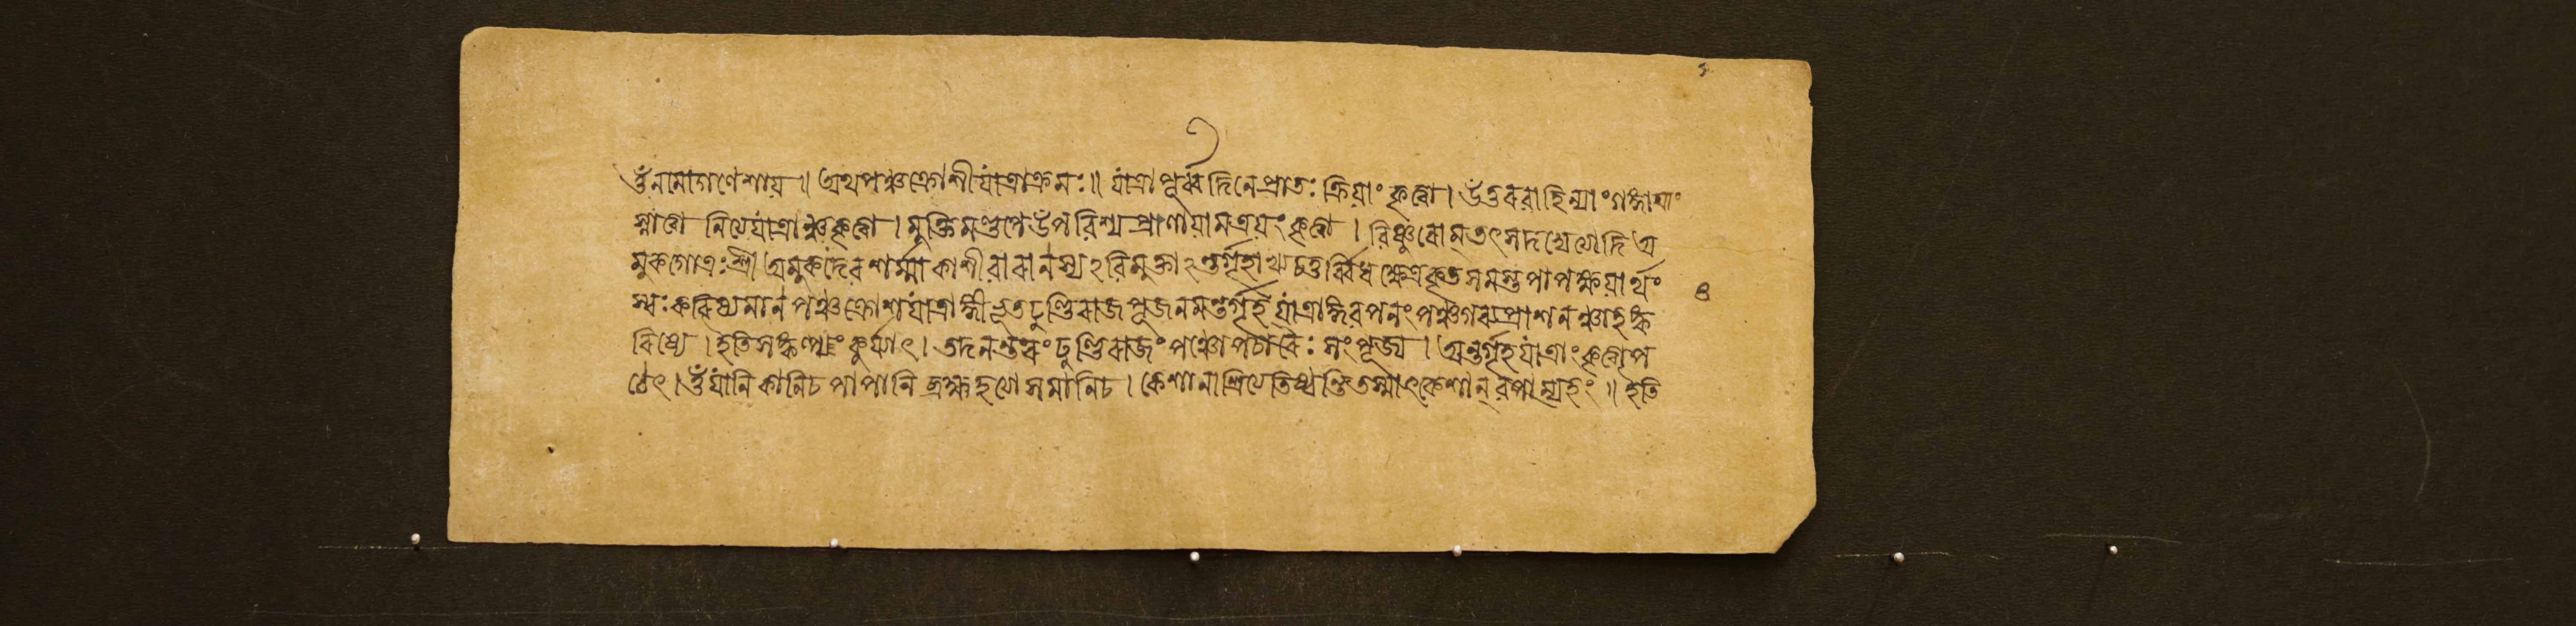 ওঁ নমো গণেশায় ॥ অথ পঞ্চক্রোশীযাত্রাক্রমঃ ॥ যাত্রাপূর্ব্বদিনে প্রাতঃক্রিয়াং কৃত্বা । উত্তরবাহিন্যাং গঙ্গায়াং
স্নাত্বা নিত্যযাত্রাঞ্চ কৃত্বা । মুক্তিমণ্ডপে উপবিশ্য প্রাণায়ামত্রয়ং কৃত্বা । বিষ্ণুরোম্ তৎসদদ্যেত্যাদি অ
মুকগোত্রঃ শ্রী অমুকদেবশর্ম্মা কাশীবারানস্যঽবিমুক্তাঽন্তর্গৃহাখ্য চতুর্ব্বিধক্ষেত্রকৃতসমস্তপাপক্ষয়ার্থং
শ্বঃ করিষ্যমাণ পঞ্চক্রোশযাত্রাঙ্গীভূত ঢুণ্ঢিরাজপূজনমন্তর্গৃহযাত্রাঙ্গিবপনং পঞ্চগব্যপ্রাশনঞ্চাহঙ্ক
রিষ্যে । ইতি সঙ্কল্পং কুর্য্যাৎ । তদনন্তরং ঢুণ্ঢিরাজং পঞ্চোপচারৈঃ সংপূজ্য । অন্তর্গৃহযাত্রাং কৃত্বা প
ঠেৎ । ওঁ যানি কানি চ পাপানি ব্রহ্মহত্যাসমানি চ । কেশানাশ্রিত্য তিষ্ঠন্তি তস্মাৎ কেশান্ বপাম্যহং ॥ ইতি